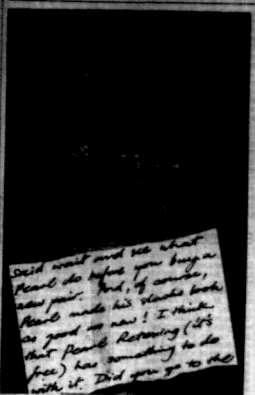 said wait and see what
Pearl do before you buy a
new pair. And, of course,
Pearl made his slacks look
as good as new! I think
that Pearl Retexing (it's
free) has something to do
with it. Did you go to the